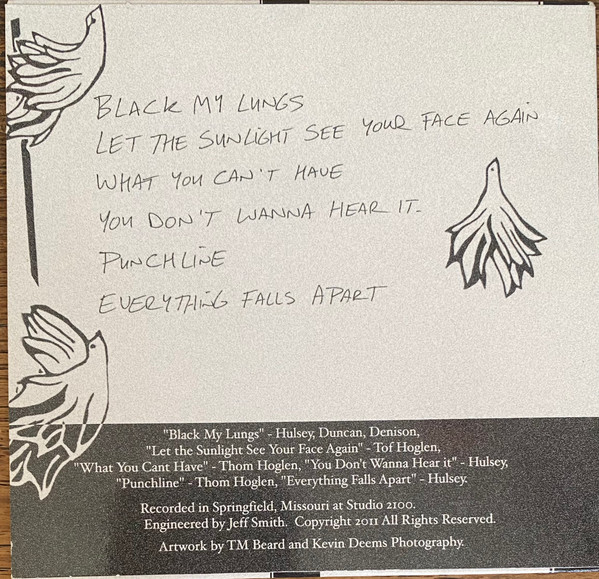 BLACK MY LUNGS
LET THE SUNLIGHT SEE YOUR FACE AGAIN
WHAT YOU CAN'T HAVE
YOU DON'T WANNA HEAR IT.
PUNCHLINE
EVERYTHING FALLS APART
"Black My Lungs" - Hulsey, Duncan, Denison,
"Let the Sunlight See Your Face Again" - Tof Hoglen,
"What You Cant Have" - Thom Hoglen, "You Don't Wanna Hear it" - Hulsey,
"Punchline" - Thom Hoglen, "Everything Falls Apart" - Hulsey.
Recorded in Springfield, Missouri at Studio 2100.
Engineered by Jeff Smith. Copyright 2011 All Rights Reserved.
Artwork by TM Beard and Kevin Deems Photography.